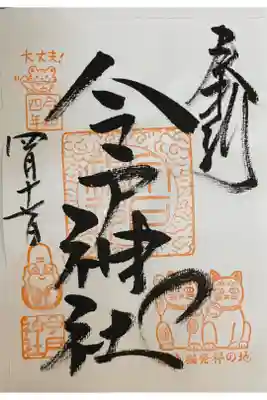 奉拝
今戸神社
大丈夫！
四年
四月十七日
招猫発祥の地
今戸神社